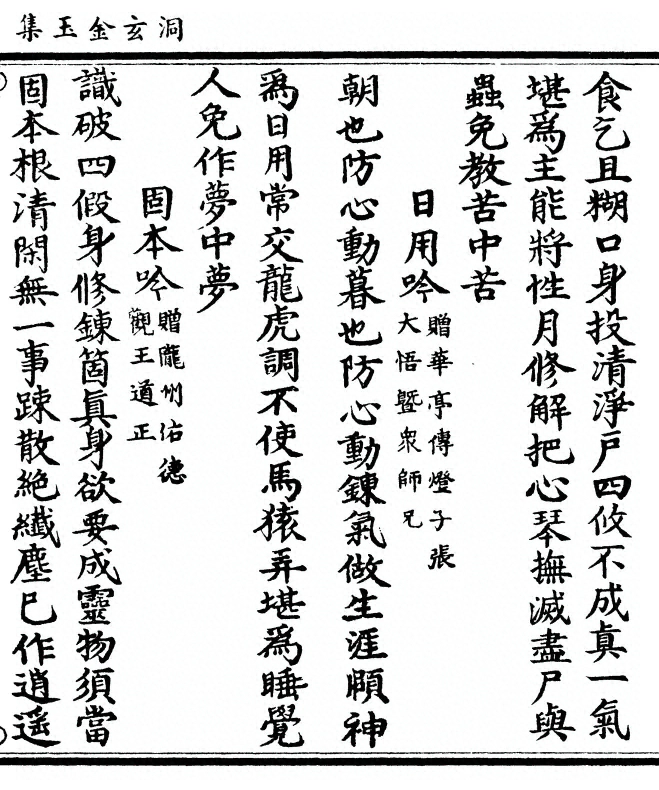 洞玄金玉集
食乞且糊口身投清淨戶四攸不成真一氣
堪爲主能將性月修解把心琴撫滅盡尸與
蟲免教苦中苦
日用吟
贈華亭傳燈子張
大悟曁衆師兄
朝也防心動暮也防心動鍊氣做生涯頤神
爲日用常交龍虎調不使馬猿弄堪爲睡覺
人免作夢中夢
固本吟
贈隴州佑德
觀王道正
識破四假身修鍊箇眞身欲要成靈物須當
固本根清閑無一事踈散絕纖塵已作逍遥